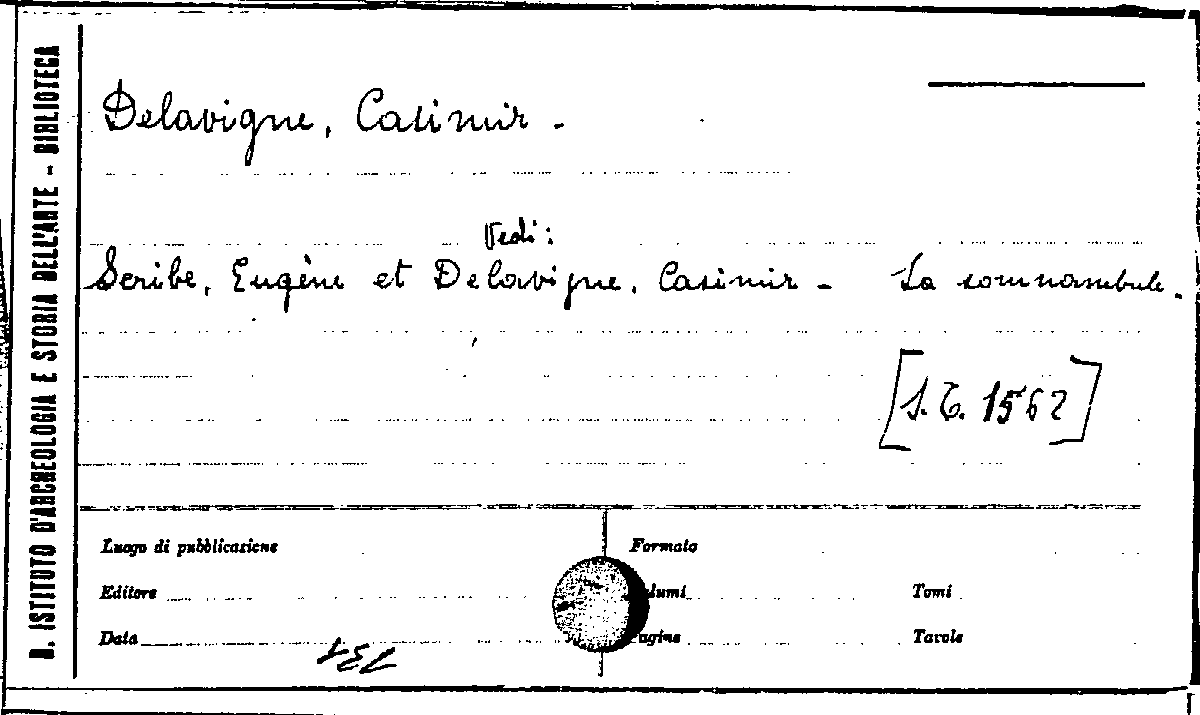 R. ISTITUTO D'ARCHEOLOGIA E STORIA DELL'ARTE - BIBLIOTECA
Delavigne, Casimir -
Vedi:
Scribe, Eugène et Delavigne, Casimir - La somnambule.
[S. T. 1562]
Luogo di pubblicazione Formato
Editore lumi Tomi
Data agine Tavole
131